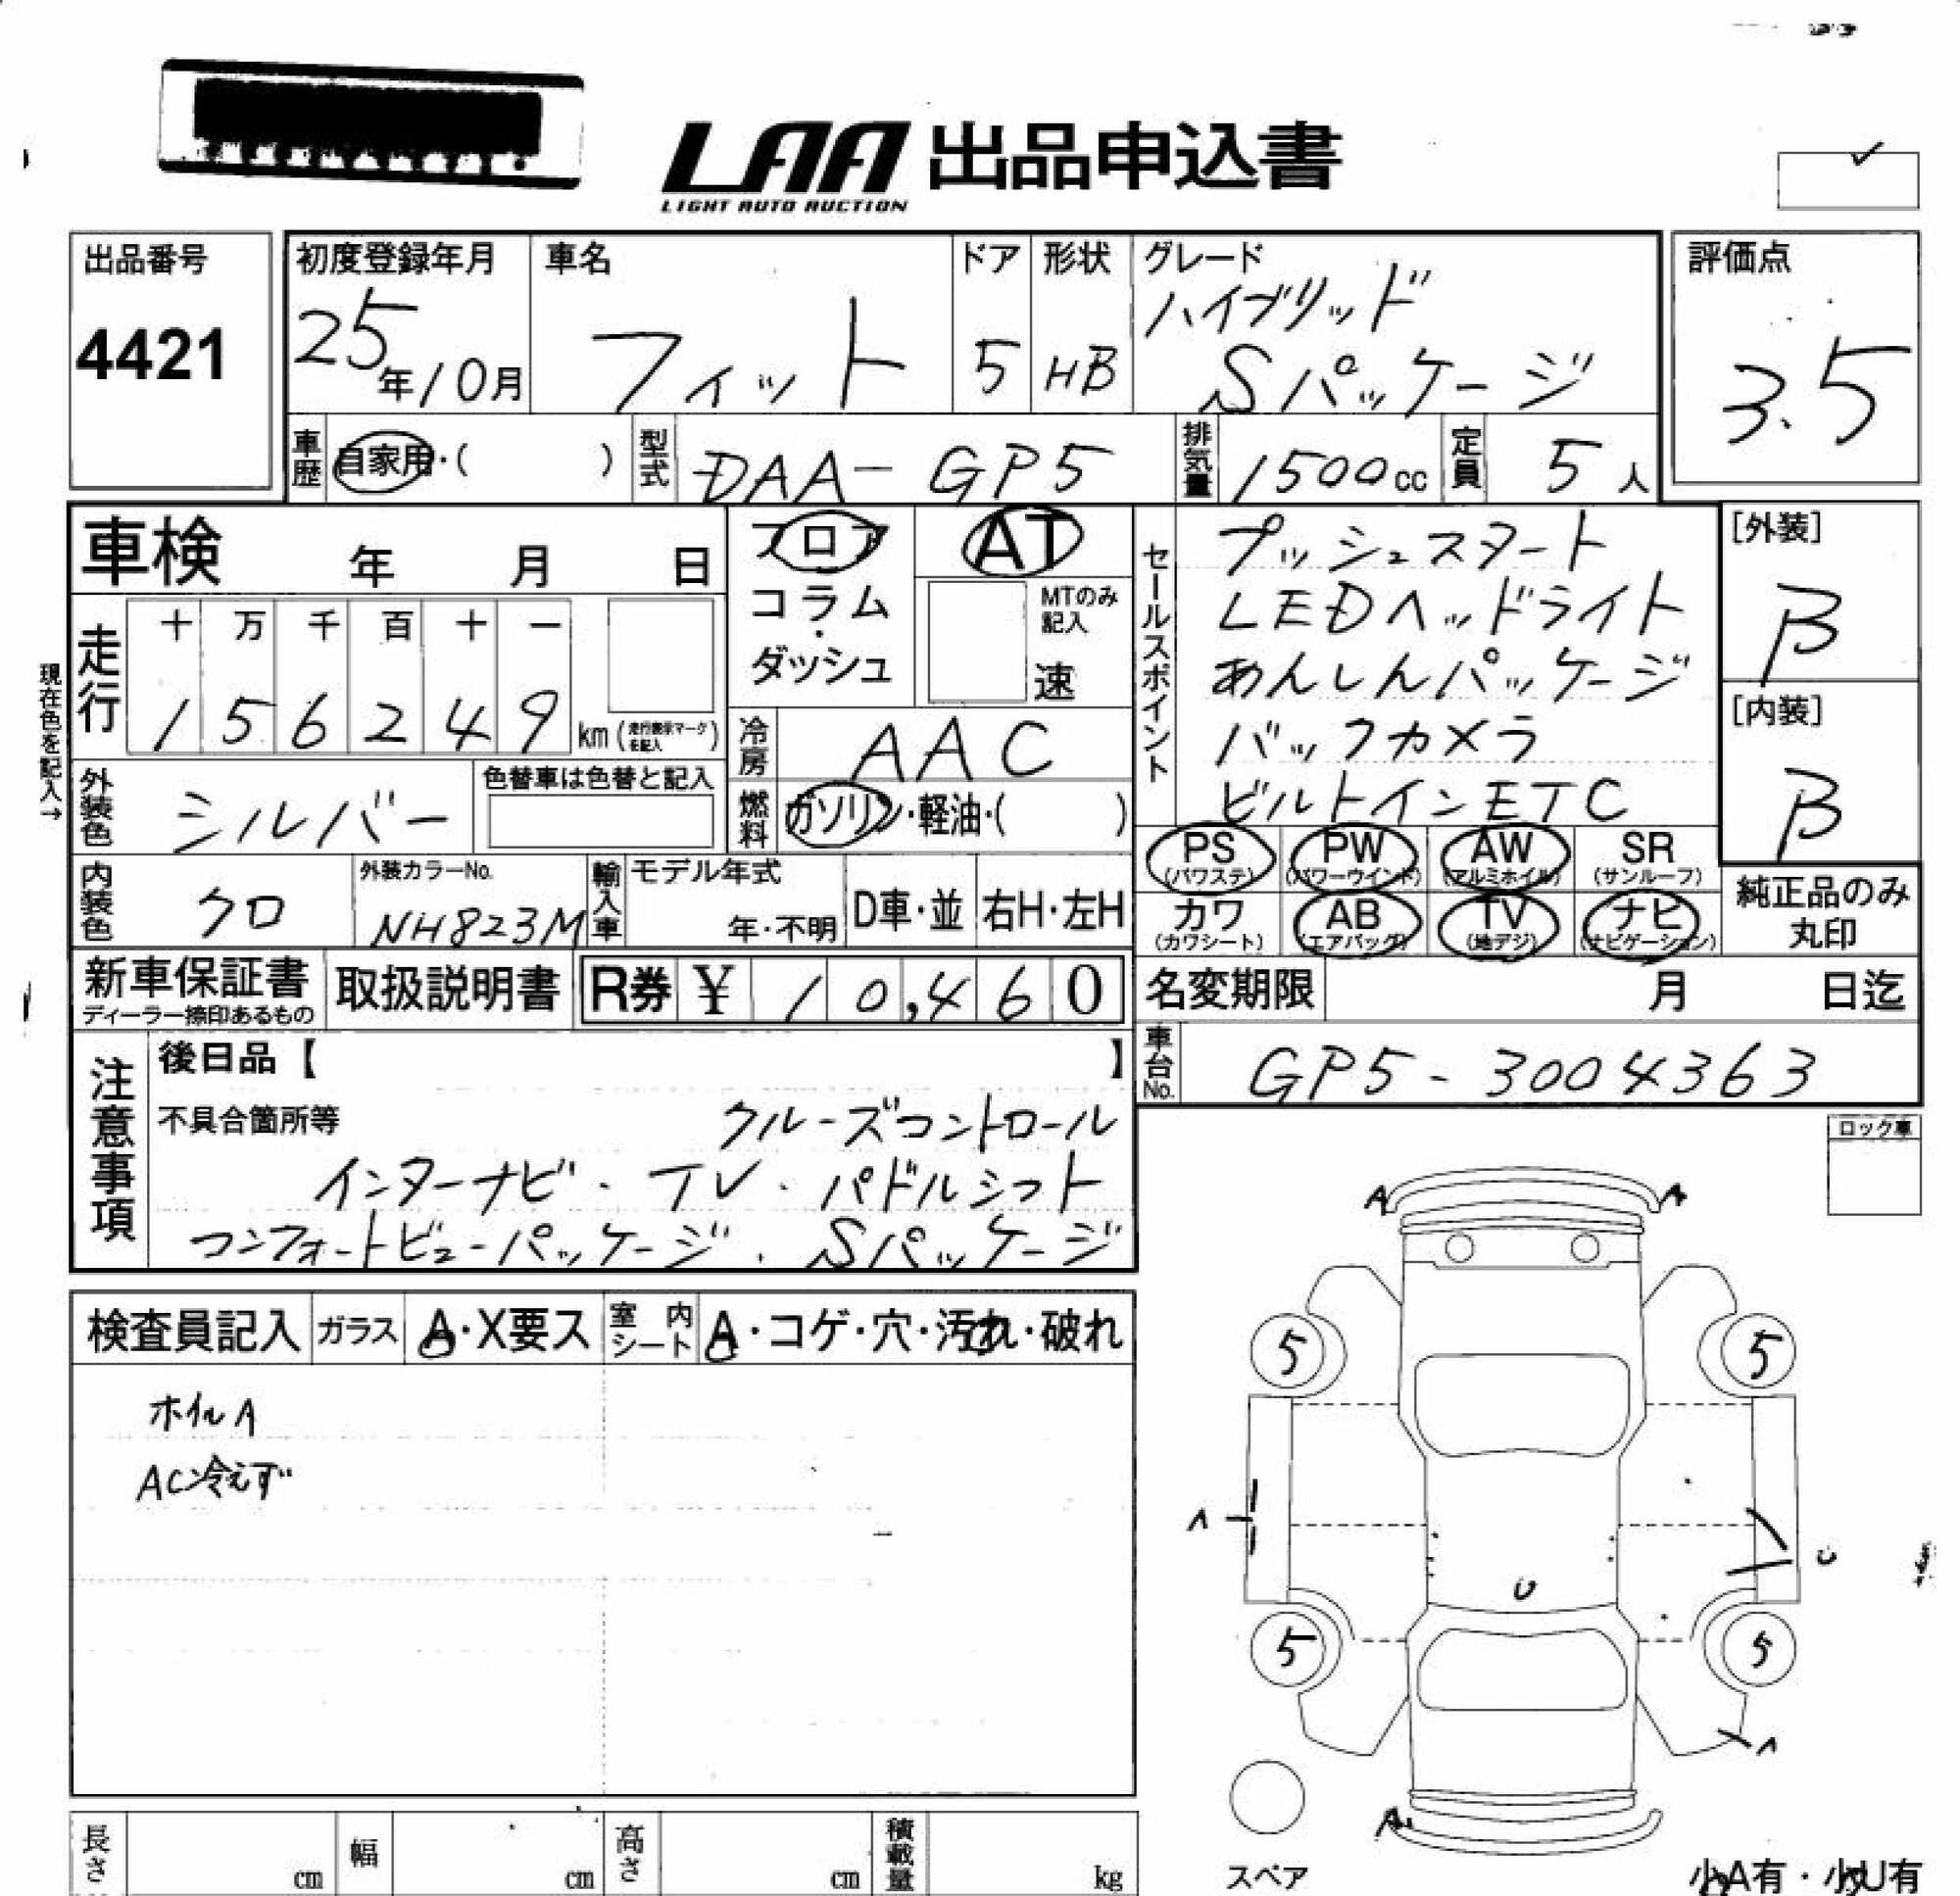 LAA 出品申込書
LIGHT AUTO AUCTION
出品番号
4421
初度登録年月
25年10月
車名
フィット
ドア
5
形状
HB
グレード
ハイブリッド
Sパッケージ
評価点
3.5
車歴
自家用・( )
型式
DAA-GP5
排気量
1500cc
定員
5人
車検 年 月 日
フロア
コラム
・
ダッシュ
AT
MTのみ
記入
速
走行
十 万 千 百 十 一
1 5 6 2 4 9 km (走行表示マークを記入)
現在色を記入→
冷房
AAC
外装色
シルバー
色替車は色替と記入
燃料
ガソリン・軽油・( )
内装色
クロ
外装カラーNo.
NH823M
輸入車
モデル年式
年・不明
D車・並
右H・左H
セールスポイント
プッシュスタート
LEDヘッドライト
あんしんパッケージ
バックカメラ
ビルトインETC
[外装]
B
[内装]
B
PS (パワステ)
PW (パワーウインド)
AW (アルミホイル)
SR (サンルーフ)
カワ (カワシート)
AB (エアバッグ)
TV (地デジ)
ナビ (ナビゲーション)
純正品のみ
丸印
新車保証書
ディーラー捺印あるもの
取扱説明書
R券 ¥ 10,460
名変期限 月 日迄
車台No.
GP5-3004363
注意事項
後日品【 】
不具合箇所等
クルーズコントロール
インターナビ・TV・パドルシフト
コンフォートビューパッケージ・Sパッケージ
ロック車
検査員記入
ガラス
A・X要ス
室内
シート
A・コゲ・穴・汚れ・破れ
ホイルA
AC冷えず
A A
5 5
A U
U
5 5
A
A
スペア
小A有・小U有
長さ cm
幅 cm
高さ cm
積載量 kg